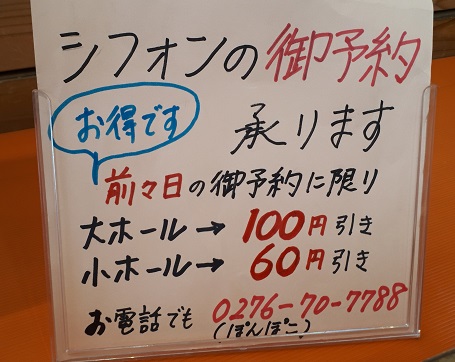 シフォンの御予約
お得です
承ります
前々日の御予約に限り
大ホール→100円引き
小ホール→60円引き
お電話でも 0276-70-7788
(ぽんぽこ)